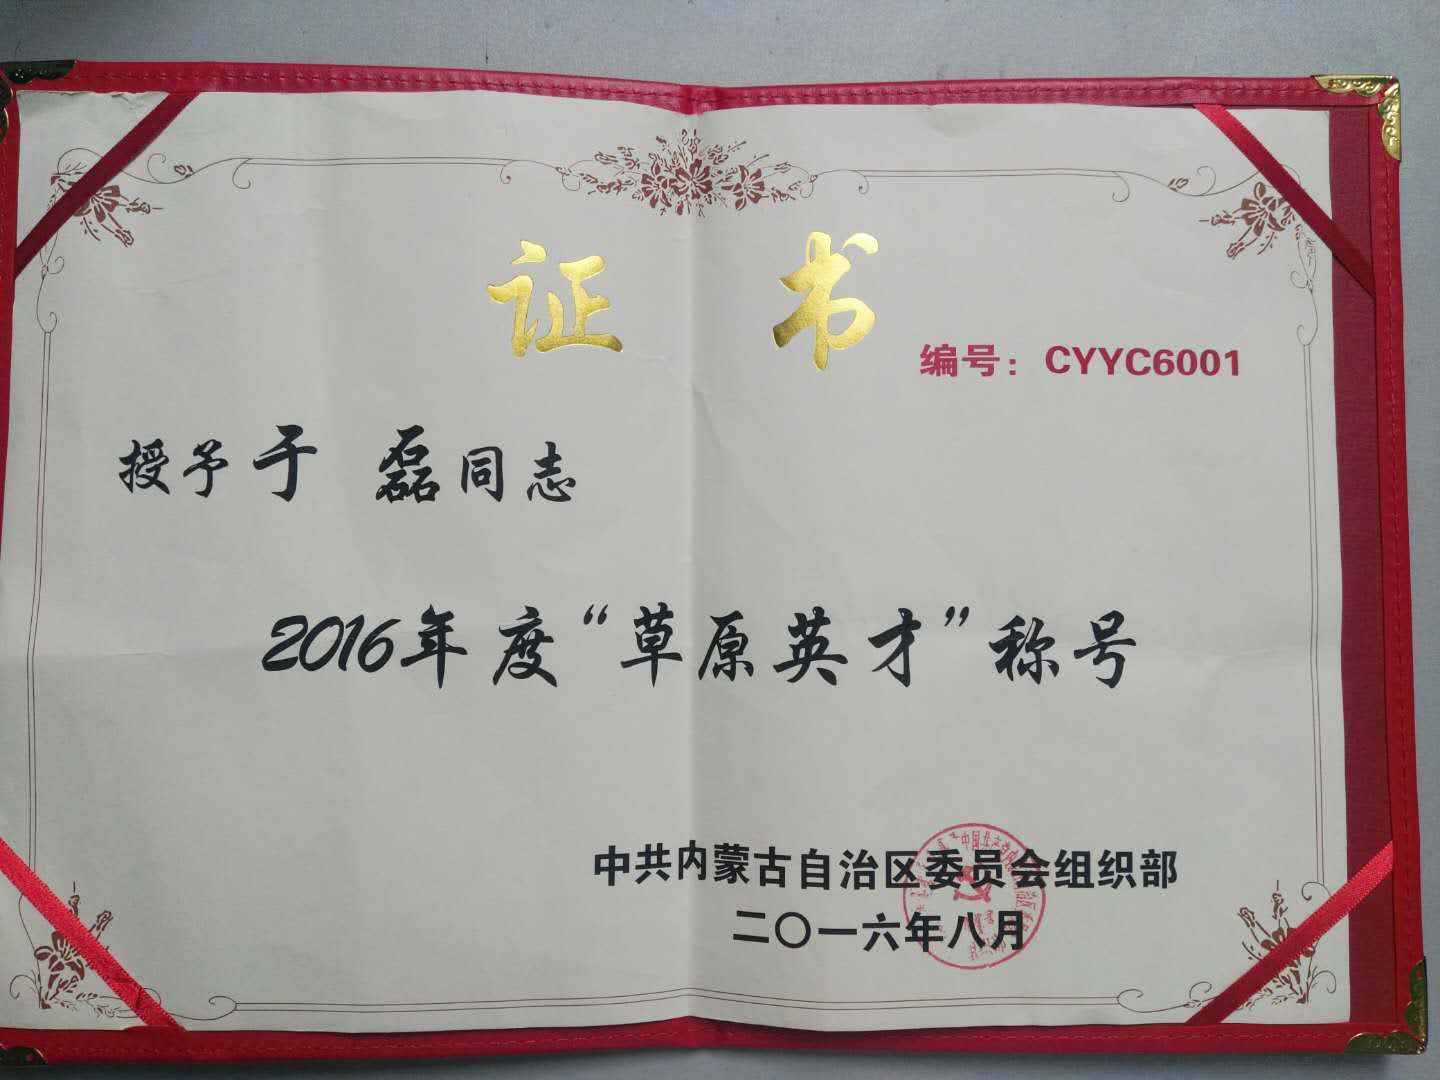 证书
编号：CYYC6001
授予于 磊同志
2016年度“草原英才”称号
中共内蒙古自治区委员会组织部
二〇一六年八月